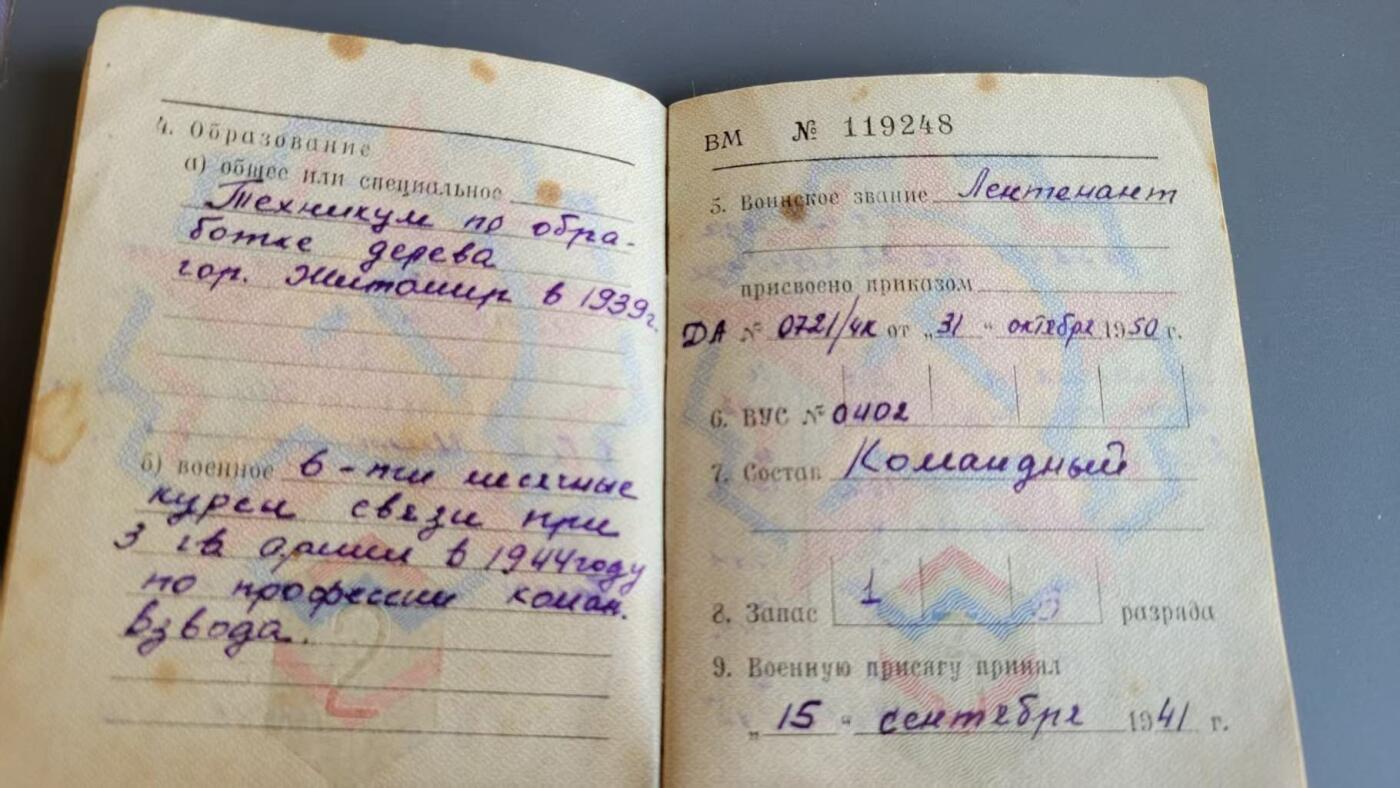 4. Образование
а) общее или специальное
Техникум по обра-
ботке дерева
гор. Житомир в 1939г.
б) военное 6-ти месячные
курсы связи при
3 гв армии в 1944 году
по профессии коман.
взвода.
ВМ № 119248
5. Воинское звание Лейтенант
присвоено приказом
ДА № 0721/чк от „31 “ октября 1950 г.
6. ВУС № 0402
7. Состав Командный
8. Запас 1 разряда
9. Военную присягу принял
„ 15 “ сентября 1941 г.